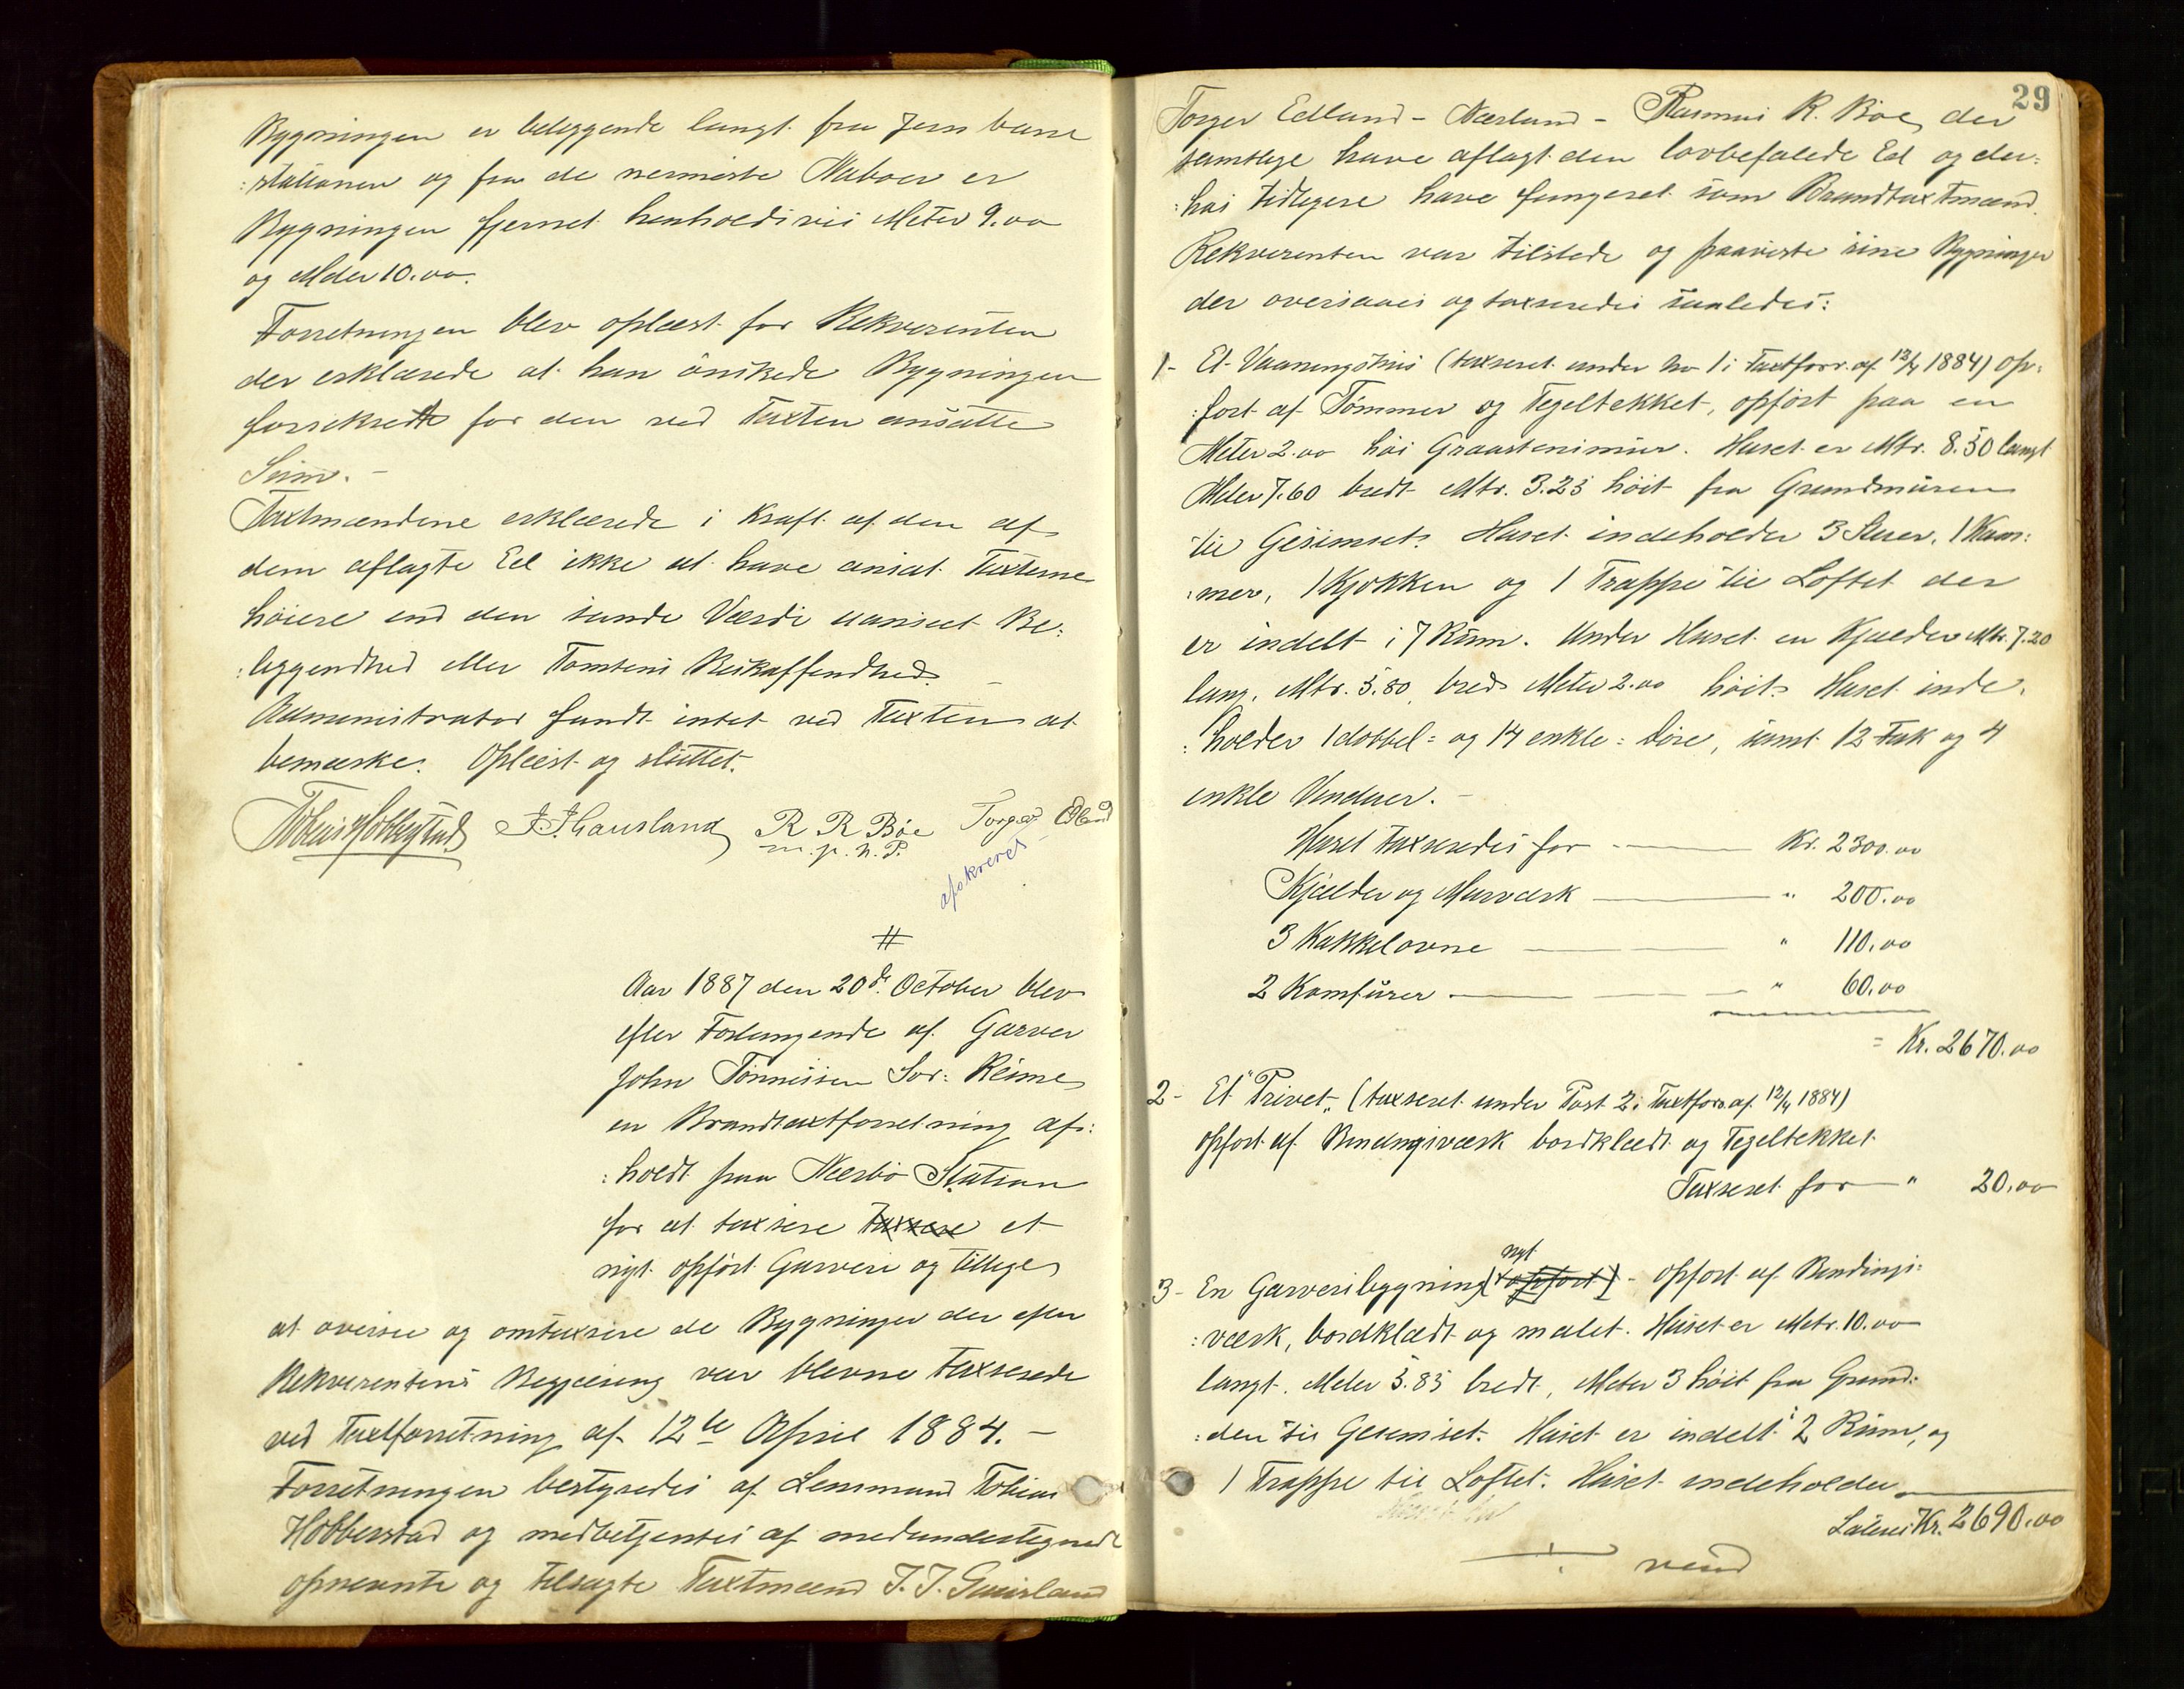 Bygningen er beliggende langt fra Jernbane
:stationen og fra de nermeste Naboer er
Bygningen fjernet henholdsvis Meter 9.00
og Meter 10.00.
Forretningen blev oplæst for Rekvirenten
der erklærede at han önskede Bygningen
forsikrett for den ved Taxten ansatte
Sum. -
Taxtmændene erklærede i Kraft af den af
dem aflagte Ed ikke at have ansat Taxterne
höiere end den sande Værdi uanseet Be:
:liggendhed eller Tomtens Beskaffendhed. -
Administrator fandt intet ved Taxten at
bemærke. Oplæst og sluttet.
Tobias Hobberstad J. J. Gausland R R Böe Torger Edland
m. p. n. P.
afskrevet -
#
Aar 1887 den 20de October blev
efter Forlangende af Garver
John Tönnesen Sör: Reime
en Brandtaxtforretning af:
:holdt paa Nærbö Station
for at taxsere taxsere et
nyt opfört Garveri og tillige
at oversee og omtaxsere de Bygninger der efter
Rekvirentens Begjæring var blevne taxserede
ved Taxtforretning af 12te April 1884. -
Forretningen bestyredes af Lensmand Tobias
Hobberstad og medbetjentes af medundertegnede
opnævnte og tilsagte Taxtmænd J. J. Gausland
29
Torger Edland - Nærland - Rasmus R. Böe, der
samtlige have aflagt den lovbefalede Ed og der:
:hos tidligere have fungeret som Brandtaxtmænd.
Rekvirenten var tilstede og paaviste sine Bygninger
der oversaaes og taxseredes saaledes:
1- Et Vaaningshus (taxseret under No 1 i Taxtforr. af 12/4 1884) op:
:fört af Tömmer og Tegeltekket, opfört paa en
Meter 2.00 höi Graastensmur. Huset er Mtr. 8.50 langt
Meter 7.60 bredt Mtr. 3.25 höit fra Grundmuren
til Gesimset. Huset indeholder 3 Stuer, 1 Kam:
:mer, 1 Kjökken og 1 Trappe til Loftet der
er indelt i 7 Rum. Under Huset en Kjælder Mtr. 7.20
lang, Mtr. 5.80, bred Meter 2.00 höit. Huset inde:
:holder 1 dobbel= og 14 enkle= Döre, samt 12 Fak og 4
enkle Vinduer. -
Huset taxseredes for - — Kr. 2300.00
Kjælder og Murværk — " 200.00
3 Kakkelovne — " 110.00
2 Komfürer — " 60.00
= Kr. 2670.00
2- Et "Privet" (taxseret under Post 2 i Taxtforr. af 12/4 1884)
opfört af Bindingsværk bordklædt og Tegeltekket
Taxseret for — " 20.00
nyt
3- En Garveribygning (opfört) - opfört af Bindings:
:værk, bordklædt og malet. Huset er Metr. 10.00
langt, Meter 5.85 bredt, Meter 3 höit fra Grun:
:den til Gesimset. Huset er indelt i 2 Rum, og
1 Trappe til Loftet. Huset indeholder
Lateres Kr. 2690.00
vend